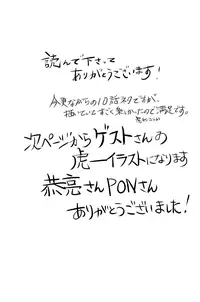 読んで下さって
ありがとうございます!
今更ながらの10話ネタですが、
描いていてすごく楽しかったので満足です。
次ページからゲストさんの
虎一イラストになります
恭亮さんPONさん
ありがとうございました!